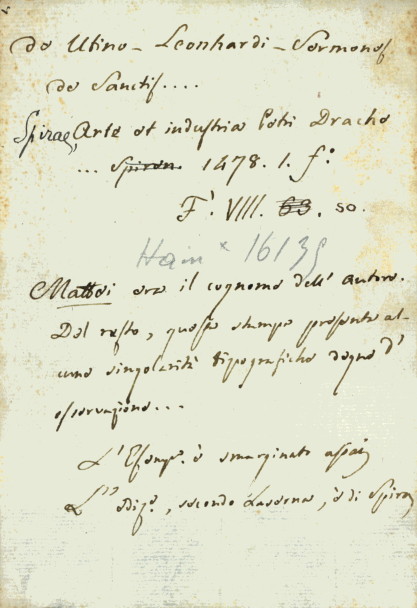 de Utino - Leonhardi - Sermones
de Sanctis....
Spirae, Arte et industria Petri Drache
... Spiren. 1478. 1. f.º
F.' VIII. 63. so.
Hain * 16135
Mattei era il cognome dell' autore.
Del resto, questa stampa presenta al-
cune singolarità tipografiche degne d'
osservazione...
L'Esemp.e è smarginato assai
L'' ediz.e, secondo Laserna, è di Spira